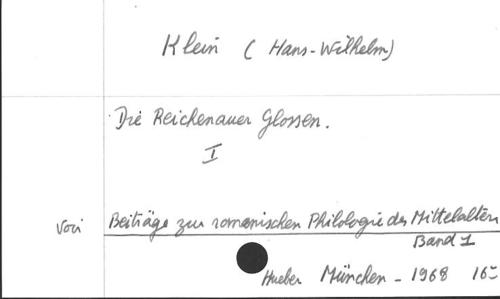 Klein ( Hans-Wilhelm)
Die Reichenauer Glossen.
I
Voir Beiträge zur romanischen Philologie des Mittelalters
Band 1
Hueber München - 1968 16º